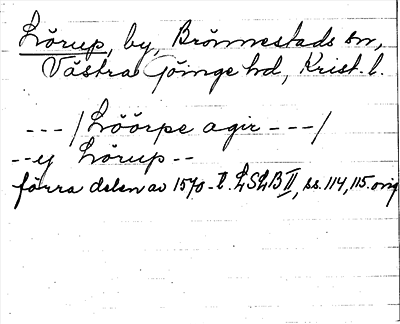 Lörup, by, Brönnestads sn,
Västra Göinge hd, Krist. l.
--- / Löörpe agir --- /
--y Lörup --
förra delen av 1570-t. LSLB II, ss. 114, 115. orig